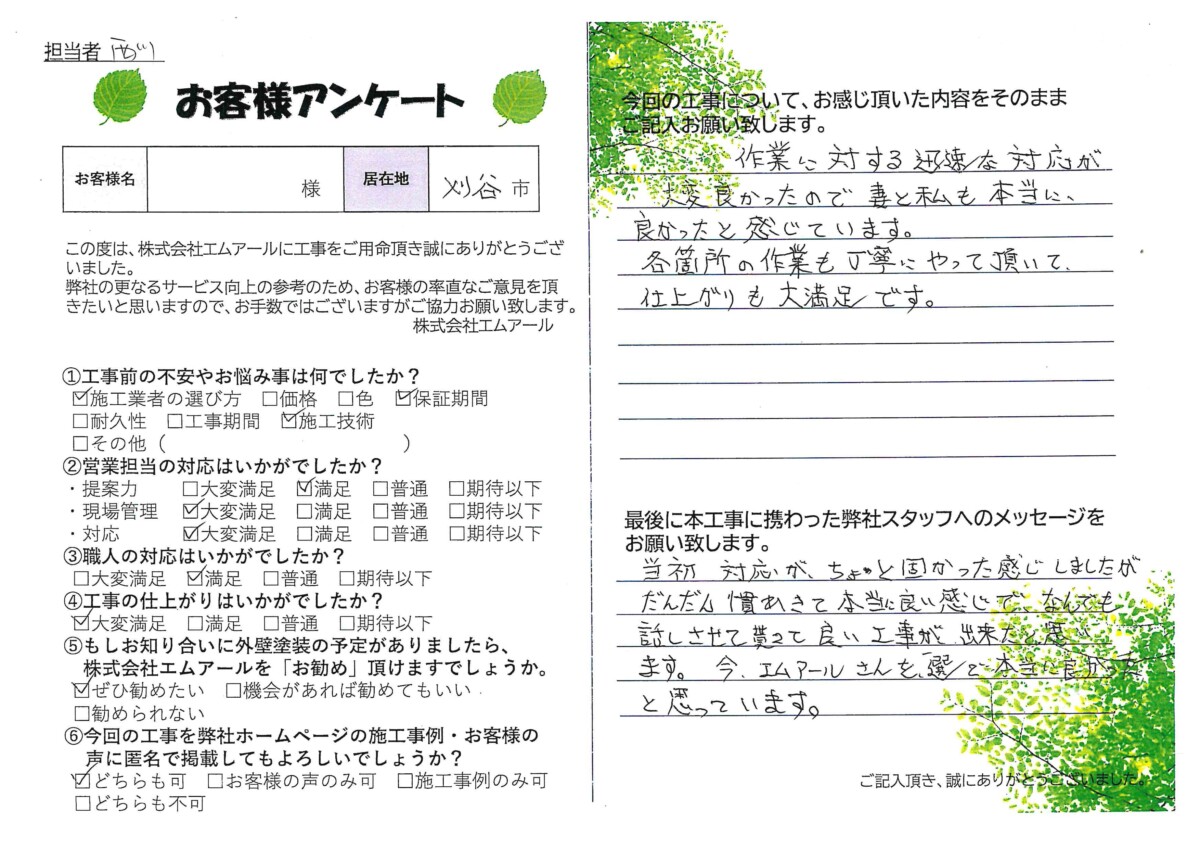 担当者 西川
お客様アンケート
お客様名 様 居在地 刈谷市
この度は、株式会社エムアールに工事をご用命頂き誠にありがとうござ
いました。
弊社の更なるサービス向上の参考のため、お客様の率直なご意見を頂
きたいと思いますので、お手数ではございますがご協力お願い致します。
株式会社エムアール
①工事前の不安やお悩み事は何でしたか？
☑施工業者の選び方 □価格 □色 ☑保証期間
□耐久性 □工事期間 ☑施工技術
□その他（ ）
②営業担当の対応はいかがでしたか？
・提案力 □大変満足 ☑満足 □普通 □期待以下
・現場管理 ☑大変満足 □満足 □普通 □期待以下
・対応 ☑大変満足 □満足 □普通 □期待以下
③職人の対応はいかがでしたか？
□大変満足 ☑満足 □普通 □期待以下
④工事の仕上がりはいかがでしたか？
☑大変満足 □満足 □普通 □期待以下
⑤もしお知り合いに外壁塗装の予定がありましたら、
株式会社エムアールを「お勧め」頂けますでしょうか。
☑ぜひ勧めたい □機会があれば勧めてもいい
□勧められない
⑥今回の工事を弊社ホームページの施工事例・お客様の
声に匿名で掲載してもよろしいでしょうか？
☑どちらも可 □お客様の声のみ可 □施工事例のみ可
□どちらも不可
今回の工事について、お感じ頂いた内容をそのまま
ご記入お願い致します。
作業に対する迅速な対応が
大変良かったので妻と私も本当に、
良かったと感じています。
各箇所の作業も丁寧にやって頂いて、
仕上がりも大満足です。
最後に本工事に携わった弊社スタッフへのメッセージを
お願い致します。
当初 対応が、ちょっと固かった感じしましたが
だんだん慣れきて本当に良い感じで、なんでも
話しさせて貰えて良い工事が出来たと思い
ます。今、エムアールさんを、選んで本当に良かった
と思っています。
ご記入頂き、誠にありがとうございました。